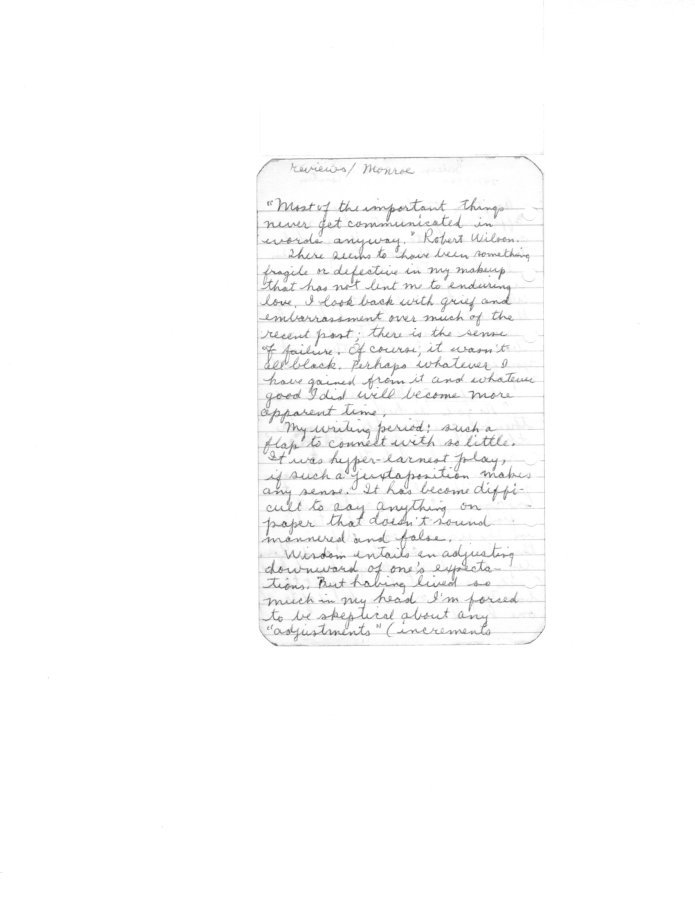 reviews/ Monroe
"Most of the important things
never get communicated in
words anyway." Robert Wilson.
There seems to have been something
fragile or defective in my makeup
that has not lent me to enduring
love. I look back with grief and
embarrassment over much of the
recent past; there is the sense
of failure. Of course, it wasn't
all black. Perhaps whatever I
have gained from it and whatever
good I did will become more
apparent time.
My writing period: such a
flap to connect with so little.
It was hyper-earnest play,
if such a juxtaposition makes
any sense. It has become diffi-
cult to say anything on
paper that doesn't sound
mannered and false.
Wisdom entails an adjusting
downward of one's expecta-
tions. But having lived so
much in my head I'm forced
to be skeptical about any
"adjustments" (increments